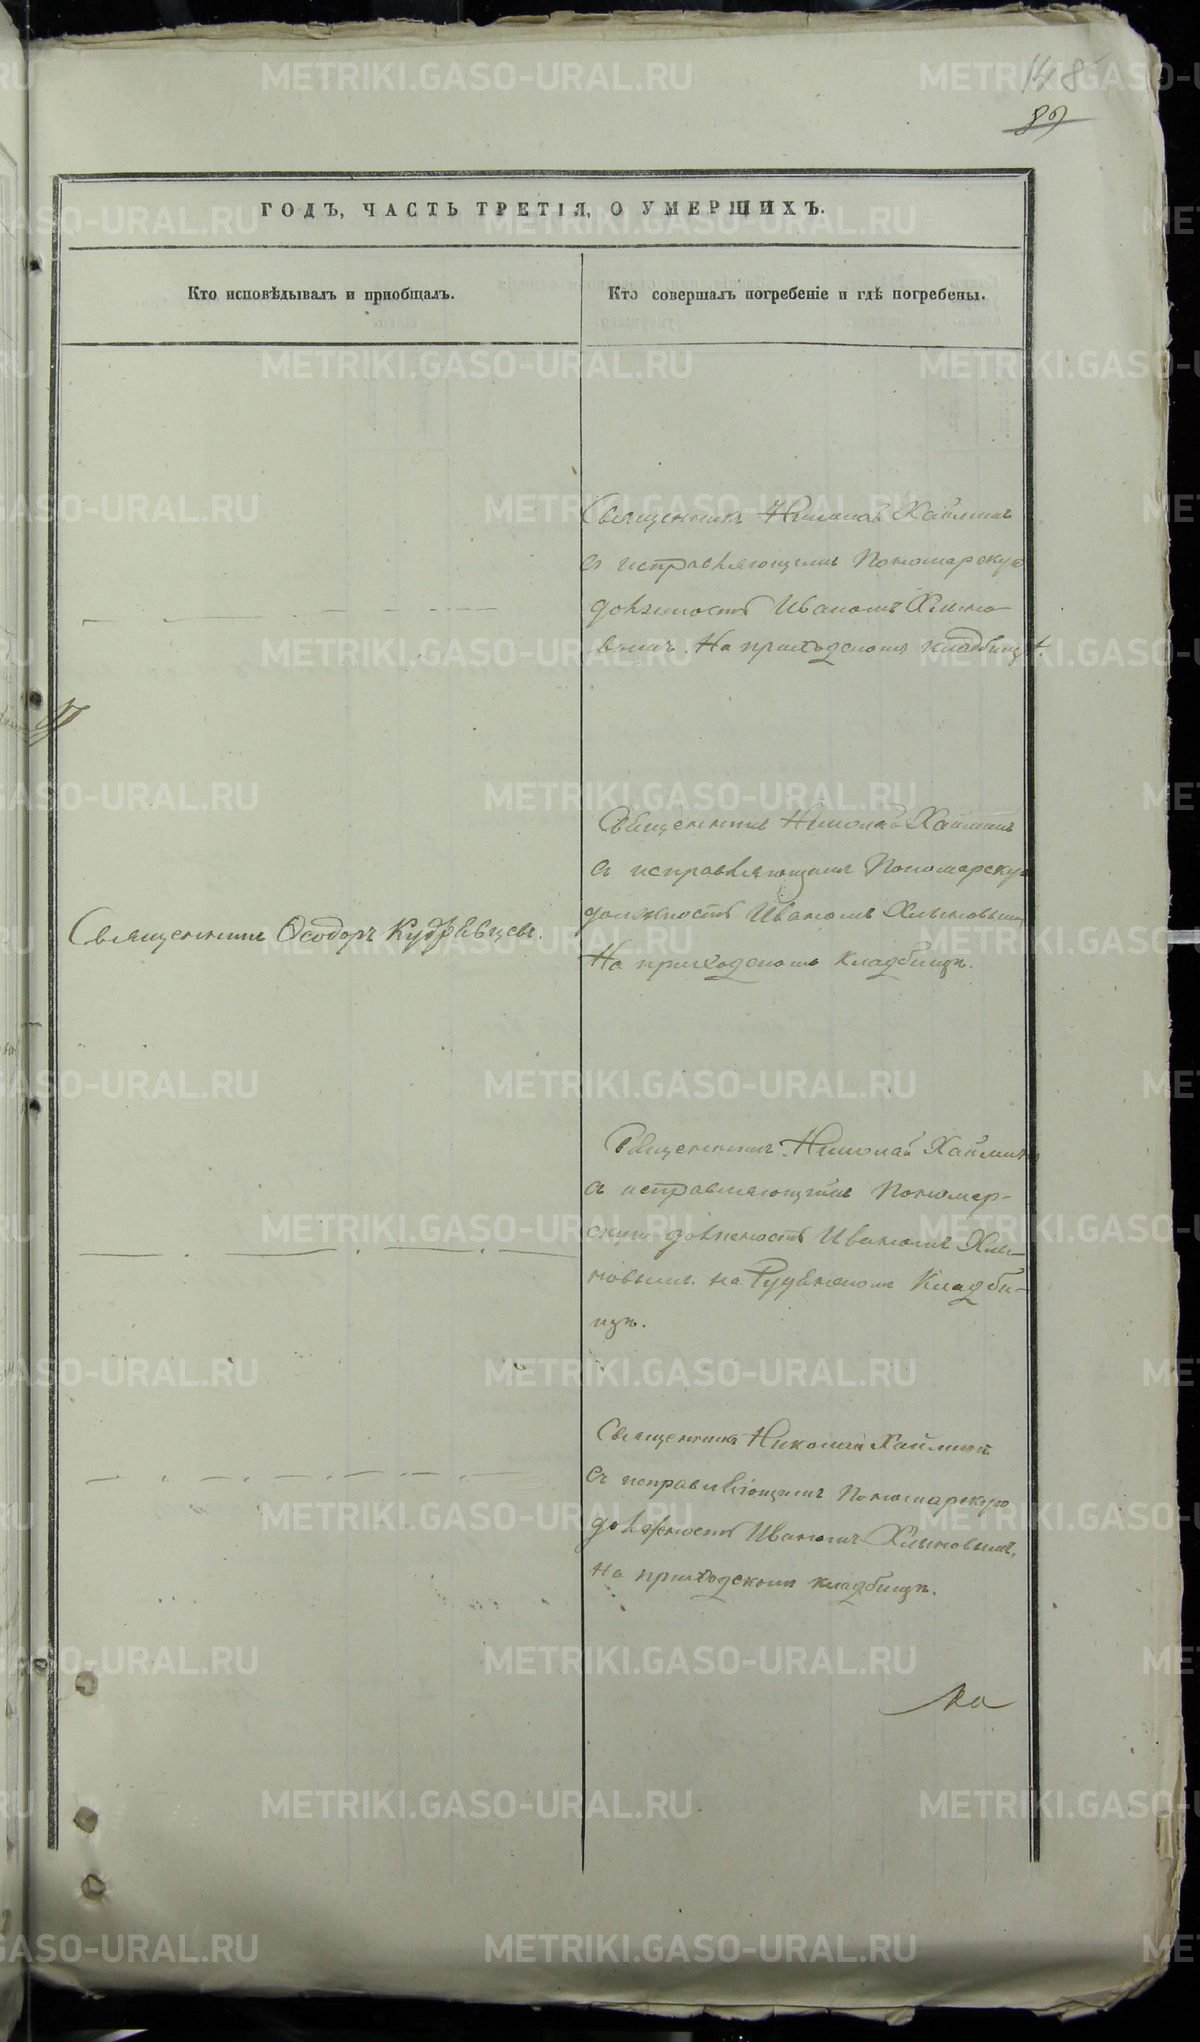 148
89
ГОДЪ, ЧАСТЬ ТРЕТІЯ, О УМЕРШИХЪ.
Кто исповѣдывалъ и приобщалъ.
Кто совершалъ погребеніе и гдѣ погребены.
Священникъ Николай Хаймин
съ исправляющимъ Пономарскую
должность Иваномъ Хлыно
вымъ. На приходскомъ кладбищѣ.
Священникъ Ѳеодоръ Кудрявцевъ.
Священникъ Николай Хаймин
съ исправляющимъ Пономарскую
должность Иваномъ Хлыновымъ
На приходскомъ кладбищѣ.
Священникъ Николай Хаймин
съ исправляющимъ Пономар-
скую должность Иваномъ Хлы-
новымъ на Рудянскомъ Кладби-
щѣ.
Священникъ Николай Хаймин
съ исправляющимъ Пономарскую
должность Иваномъ Хлыновымъ,
на приходскомъ кладбищѣ.
METRIKI.GASO-URAL.RU